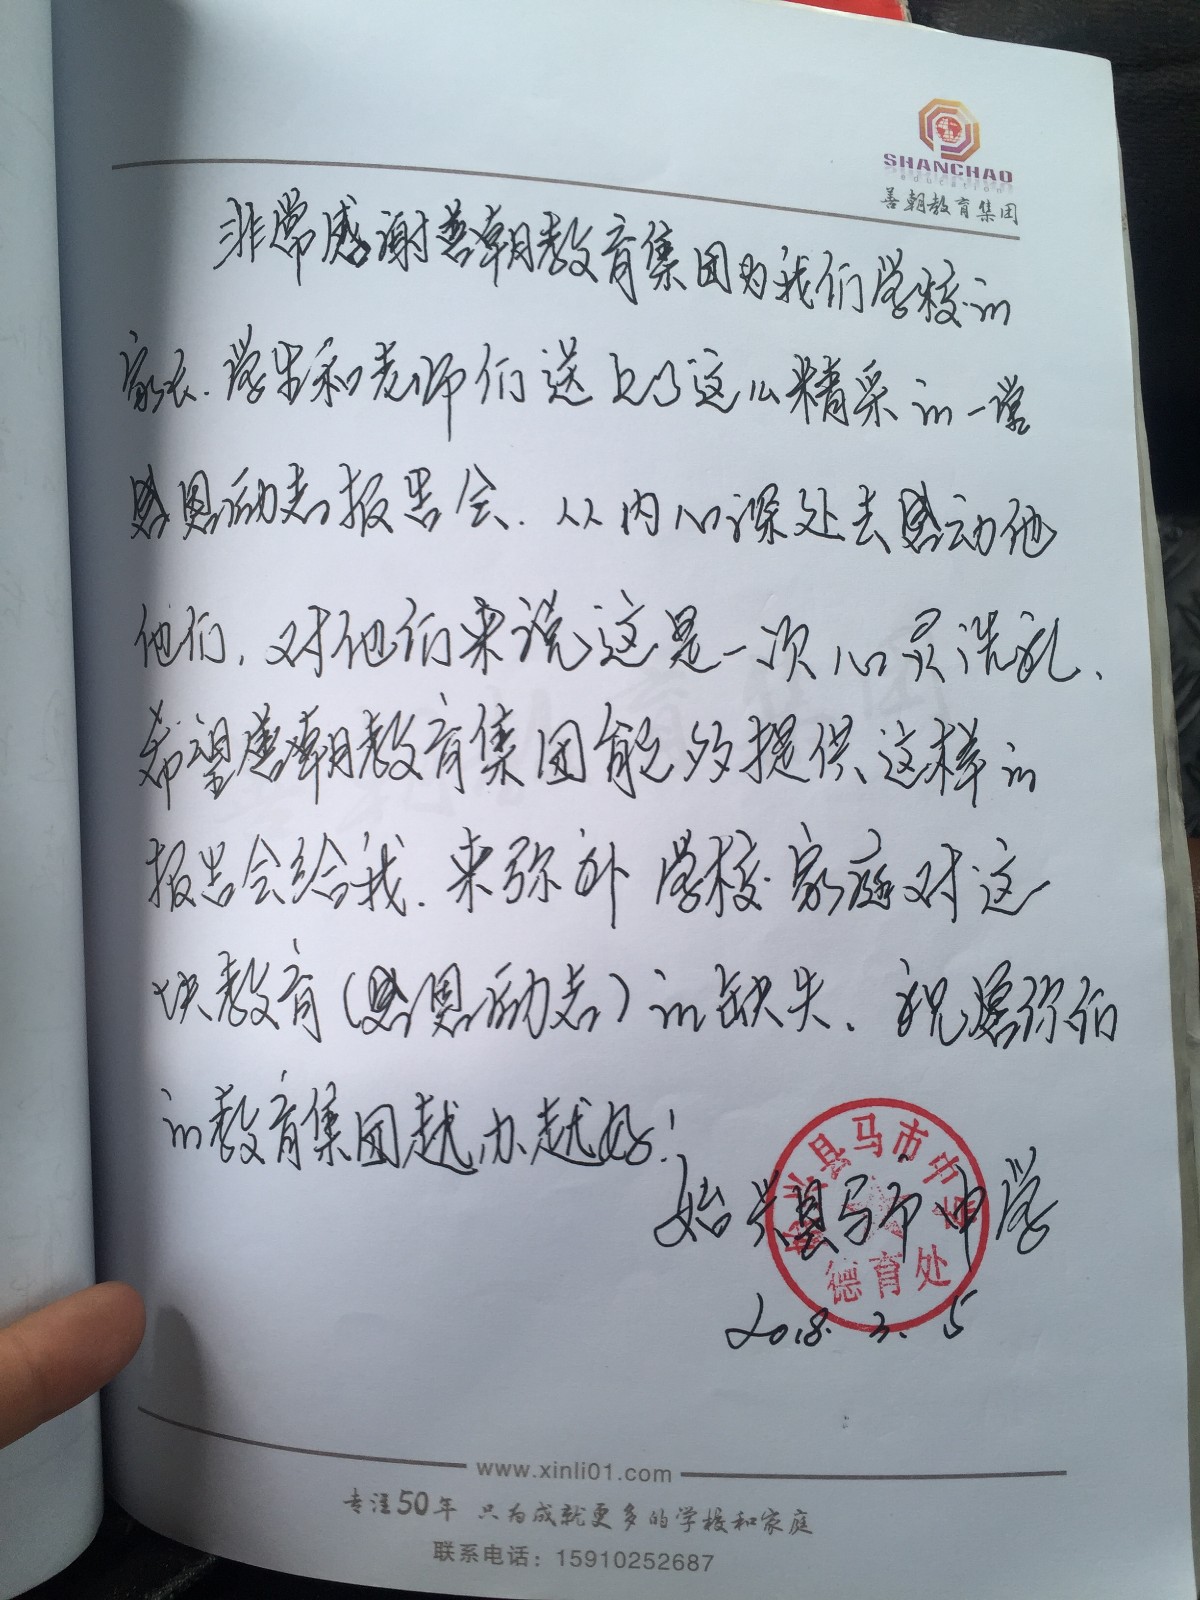 SHANCHAO
education
善朝教育集团
非常感谢善朝教育集团为我们学校的
家长、学生和老师们送上了这么精采的一堂
感恩励志报告会、从内心深处去感动他
他们，对他们来说这是一次心灵洗礼、
希望善朝教育集团能够提供这样的
报告会给我、来弥补学校家庭对这
块教育(感恩励志)的缺失、祝愿你们
的教育集团越办越好！
始兴县马市中学
始兴县马市中学
德育处
2018.3.5
www.xinli01.com
专注50年 只为成就更多的学校和家庭
联系电话：15910252687